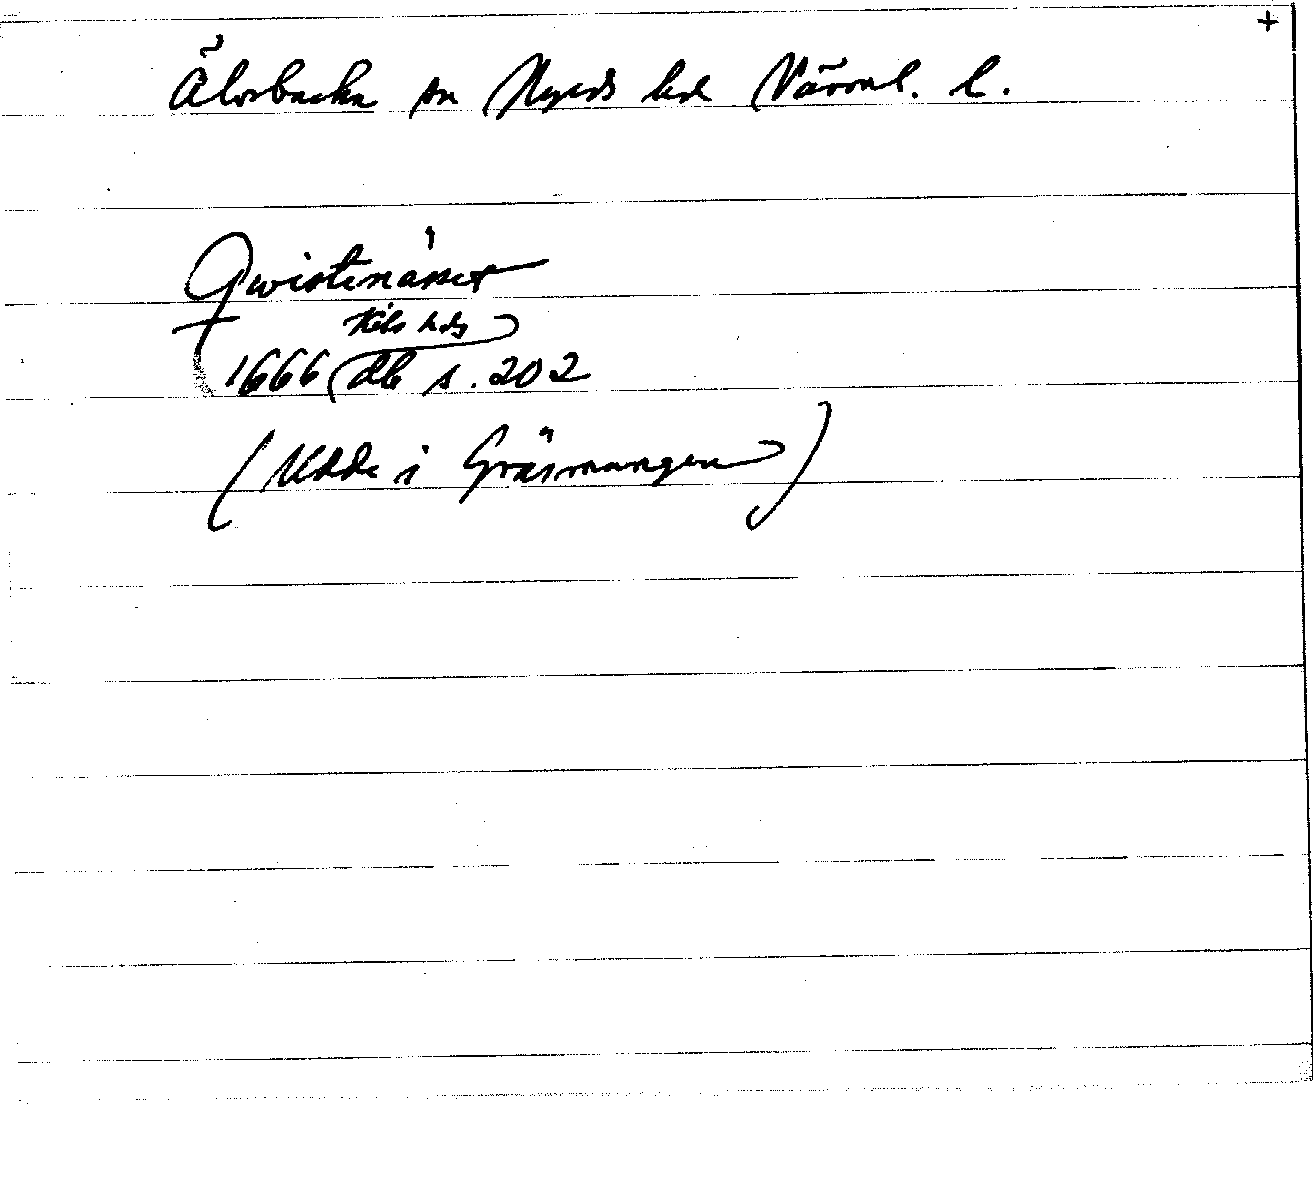 +
Älvsbacka sn Nyeds hd Värml. l.
Qwistenäset
Kils hds
1666 db s. 202
(Udde i Gräsmangen)